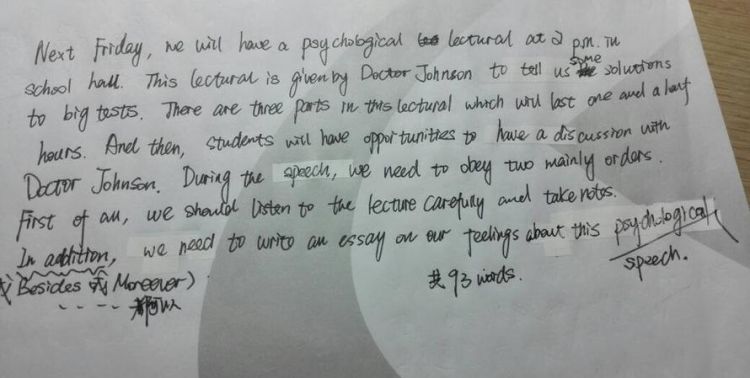 Next Friday, we will have a psychological lectural at 2 p.m. in
school hall. This lectural is given by Doctor Johnson to tell us some solutions
to big tests. There are three parts in this lectural which will last one and a half
hours. And then, students will have opportunities to have a discussion with
Doctor Johnson. During the speech, we need to obey two mainly orders.
First of all, we should listen to the lecture carefully and take notes.
In addition, we need to write an essay on our feelings about this psychological
speech.
或Besides 或 Moreover)
都可以
共93 words.